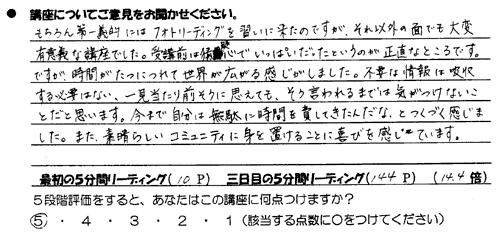 ● 講座についてご意見をお聞かせください。
もちろん第一義的にはフォトリーディングを習いに来たのですが、それ以外の面でも大変
有意義な講座でした。受講前は猜疑心でいっぱいだったというのが正直なところです。
ですが、時間がたつにつれて世界が広がる感じがしました。不要な情報は吸収
する必要はない、一見当たり前そうに思えても、そう言われるまでは気がつけないこ
とだと思います。今まで自分は無駄に時間を費してきたんだな、とつくづく感じま
した。また、素晴らしいコミュニティに身を置けることに喜びを感じています。
最初の5分間リーディング(10 P) 三日目の5分間リーディング(144 P) (14.4 倍)
5段階評価をすると、あなたはこの講座に何点つけますか?
5 ・ 4 ・ 3 ・ 2 ・ 1 (該当する点数に○をつけてください)